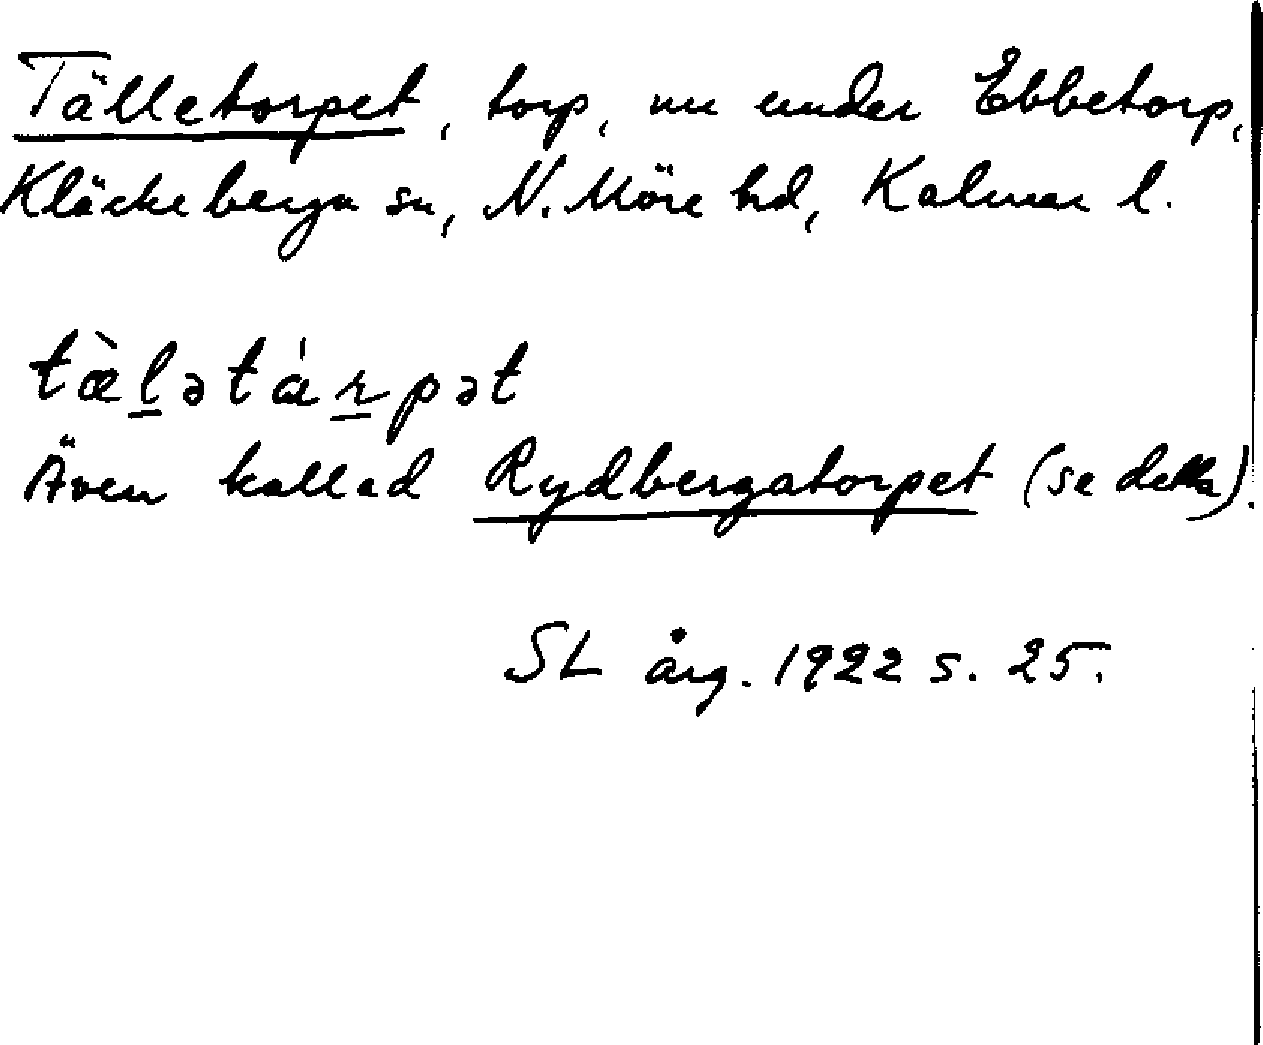 Tälletorpet, torp, nu under Ebbetorp,
Kläckeberga sn, N. Möre hd, Kalmar l.
tæ̀l̲ətá̲r̲pət
Även kallad Rydbergatorpet (se detta).
SL årg. 1922 s. 25.